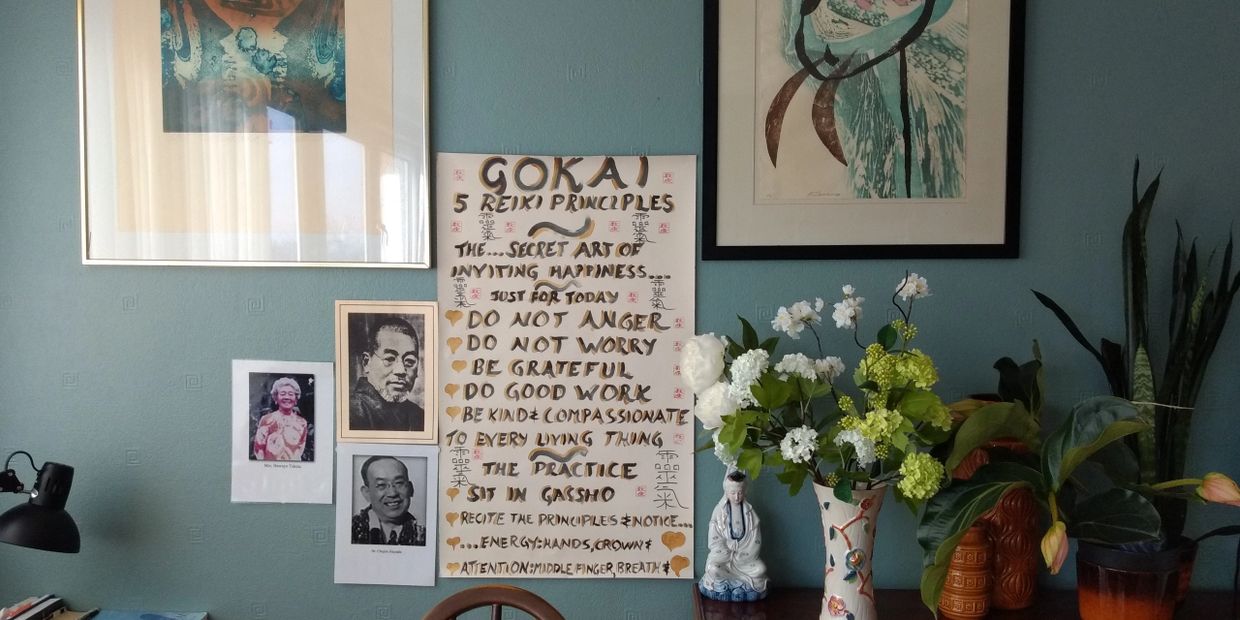 GOKAI
5 REIKI PRINCIPLES
THE...SECRET ART OF
INVITING HAPPINESS...
JUST FOR TODAY
DO NOT ANGER
DO NOT WORRY
BE GRATEFUL
DO GOOD WORK
BE KIND & COMPASSIONATE
TO EVERY LIVING THING
THE PRACTICE
SIT IN GASSHO
RECITE THE PRINCIPLES & NOTICE...
...ENERGY:HANDS, CROWN &
ATTENTION:MIDDLE FINGER, BREATH &
靈氣
Mrs. Hawayo Takata
Dr. Chujiro Hayashi